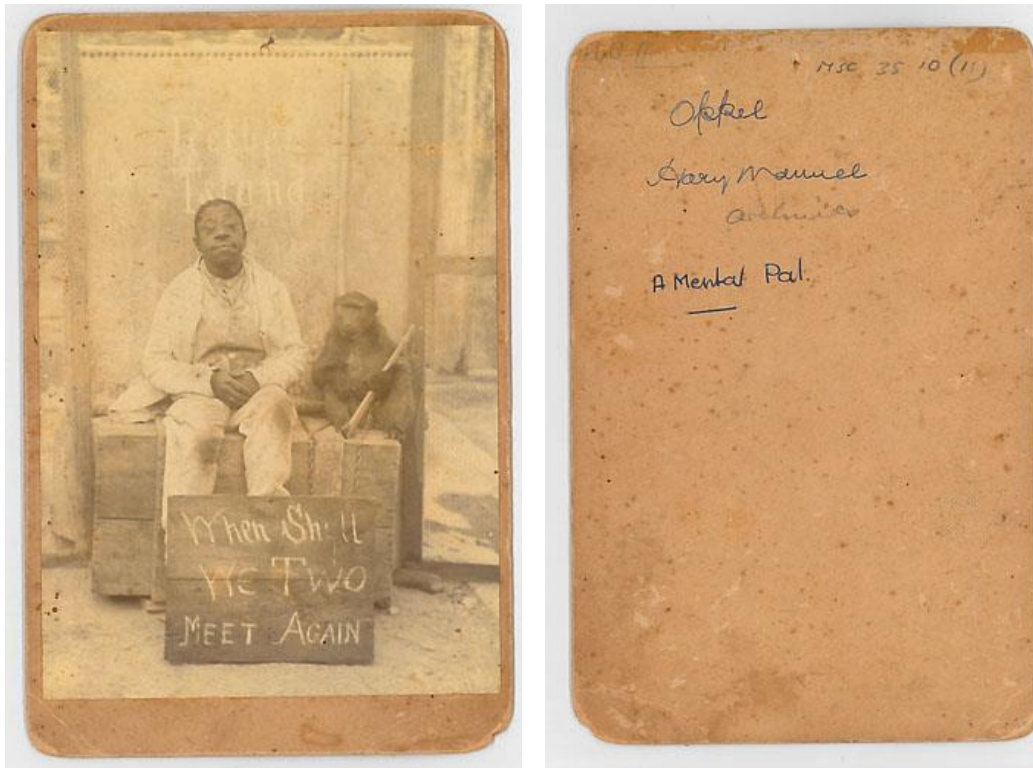 Robben
Island
When Shall
We Two
MEET AGAIN
MSC 35 10 (11)
Oppel
Manuel
A Mental Pal.